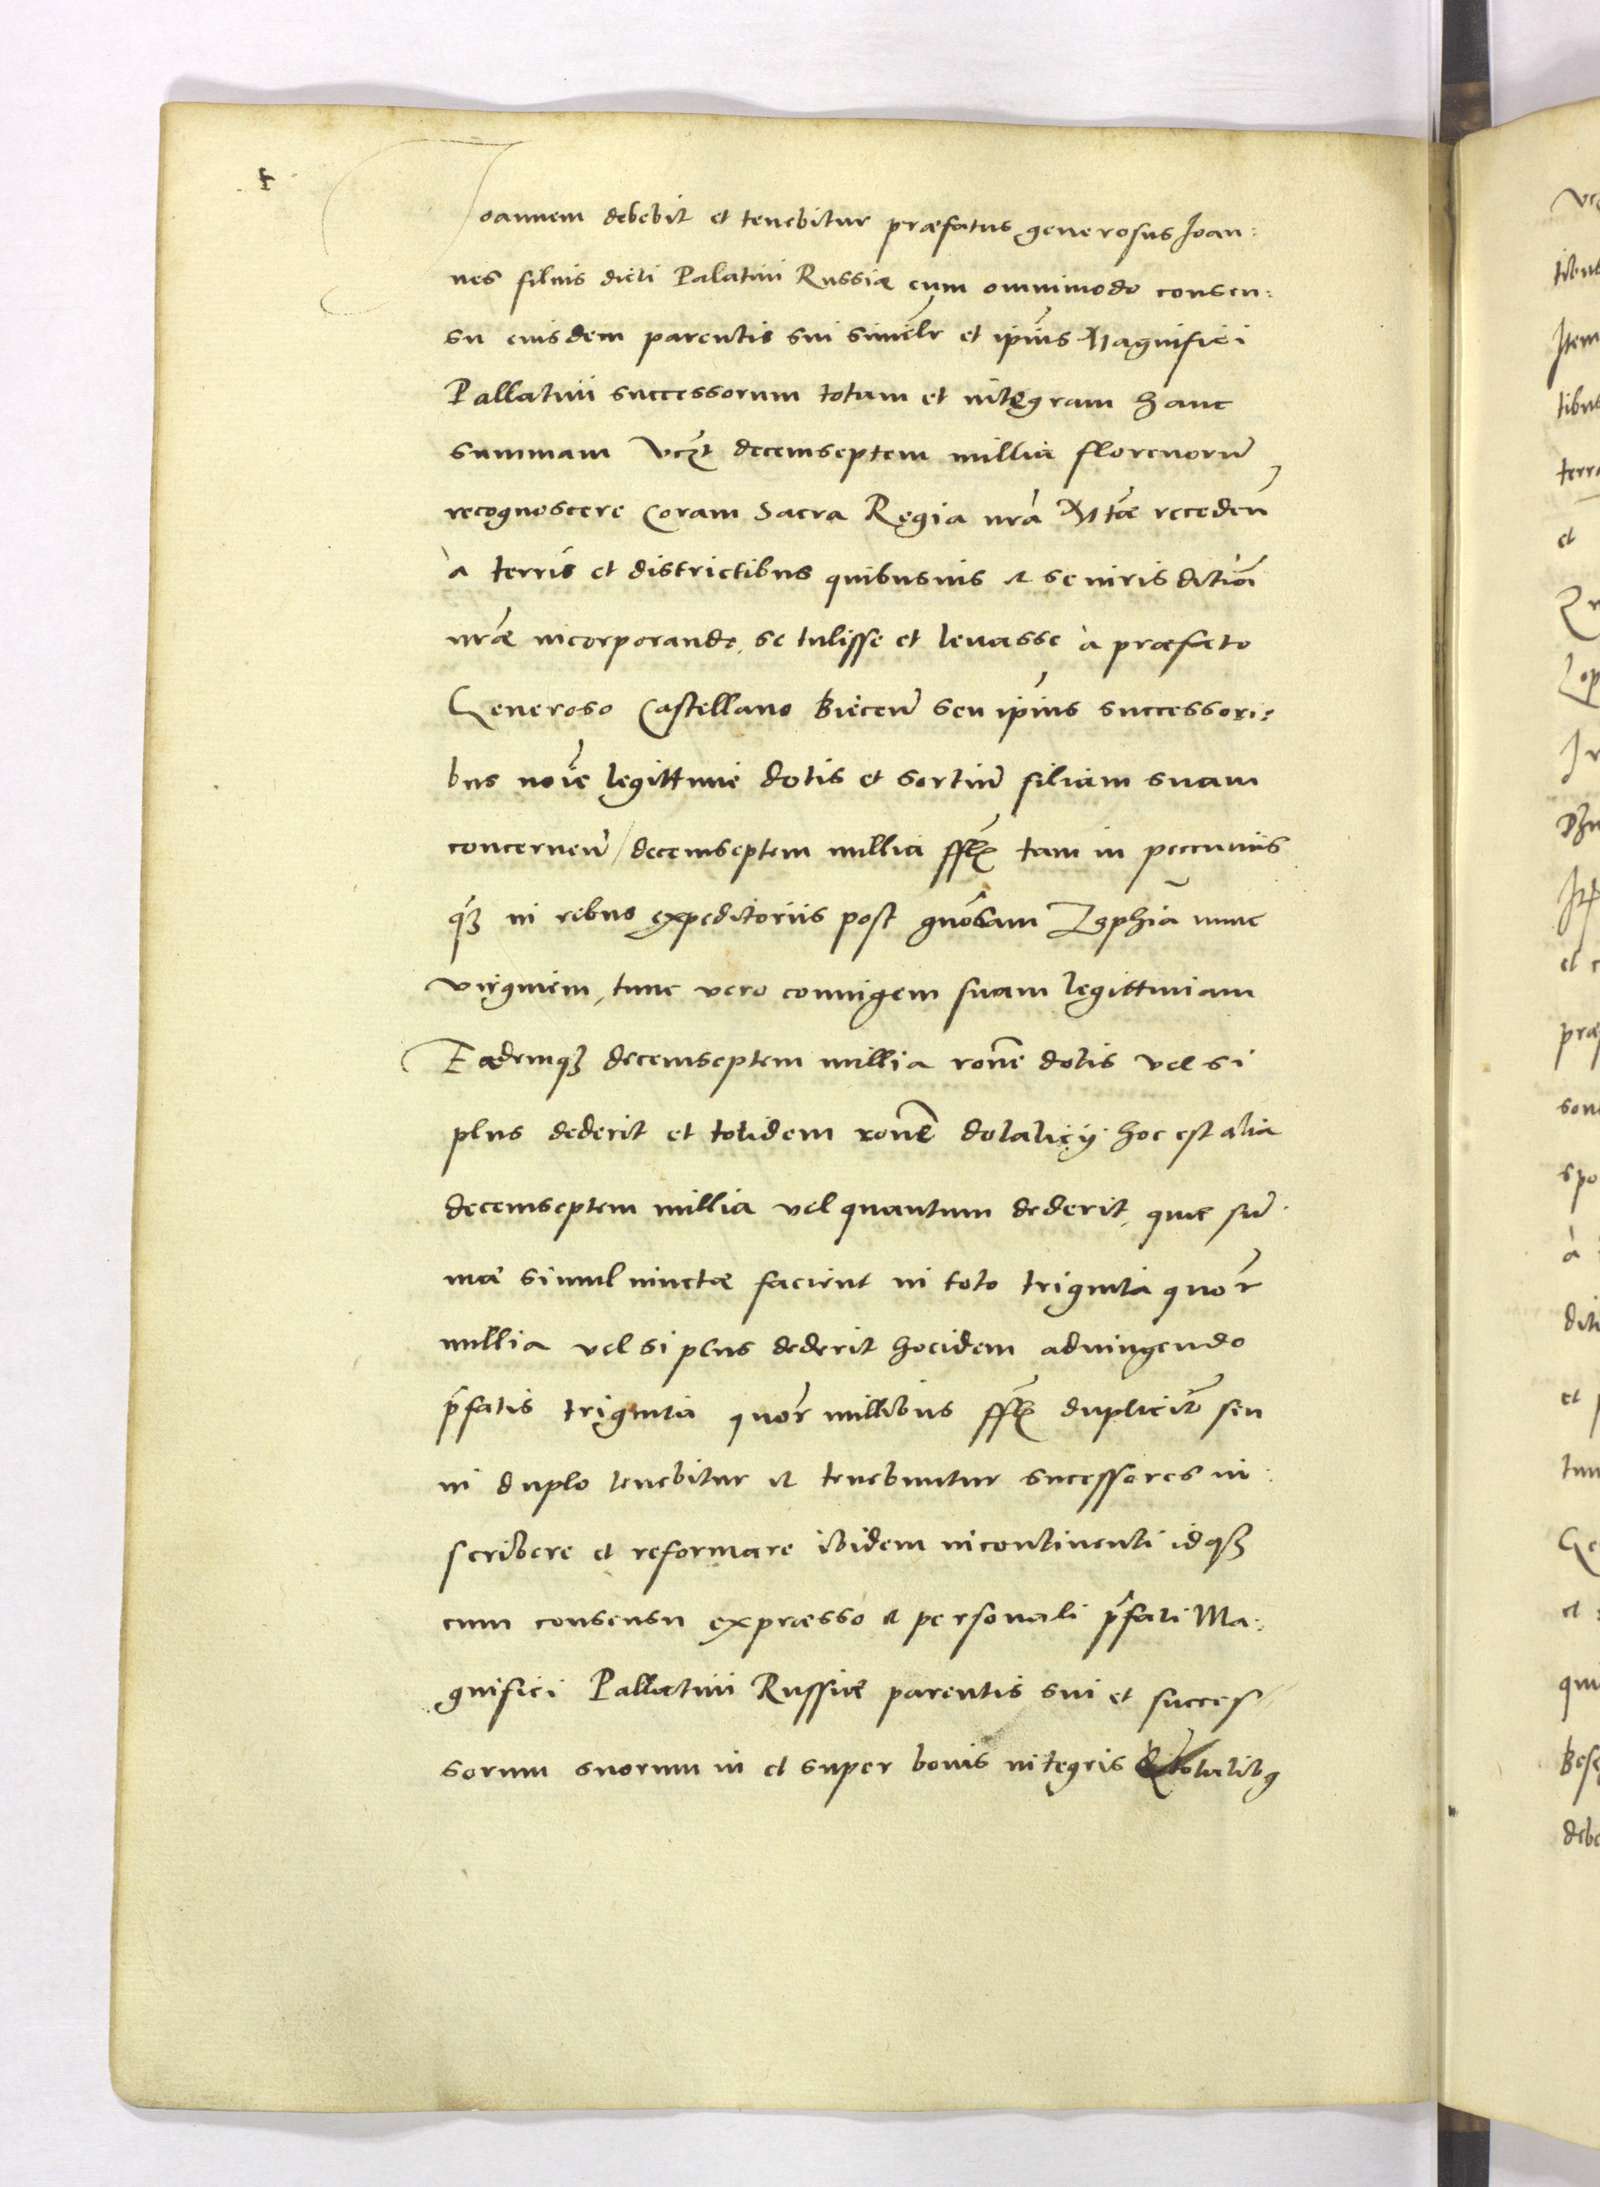 Joannem debebit et tenebitur præfatus generosus Joan:
nes filius dicti Palatini Russiæ cum omnimodo consen:
su eiusdem parentis sui simêlr et ip̃ius Magnifici
Pallatini successorum totam et integram hanc
summam vcz̃t decemseptem millia florenorũ
recognoscere Coram Sacra Regia nr̃a Mt̃æ receden̄
à terris et districtibus quibusuis et se iurisdictioñi
nr̃æ incorporando, se tulisse et leuasse à præfato
Generoso Castellano Biecen̄ seu ip̃ius successori:
bus noĩe legittimæ dotis et sortium filiam suam
concernen̄ / decemseptem millia ffl̃ tam in peccuniis
q̃ꝫ in rebus expeditoriis post gnõsam Zophiã nunc
virginem, tunc vero coniugem suam legittimam
Eademqꝫ decemseptem millia rõne dotis vel si
plus dederit et totidem rõne dotalicij hoc est alia
decemseptem millia vel quantum dederit, quæ sum̃
mæ simul iunctæ faciunt in toto triginta quor̃
millia vel si plus dederit hocidem adiungendo
p̃fatis triginta quor̃ millibus ffl̃ duplicit̃ seu
in duplo tenebitur et tenebuntur sucessores in:
scribere et reformare ibidem incontinenti idqꝫ
cum consensu expræsso et personali p̃fati Ma:
gnifici Pallatini Russiæ parentis sui et succes=
sorum suorum in et super bonis integris et totalibꝰ